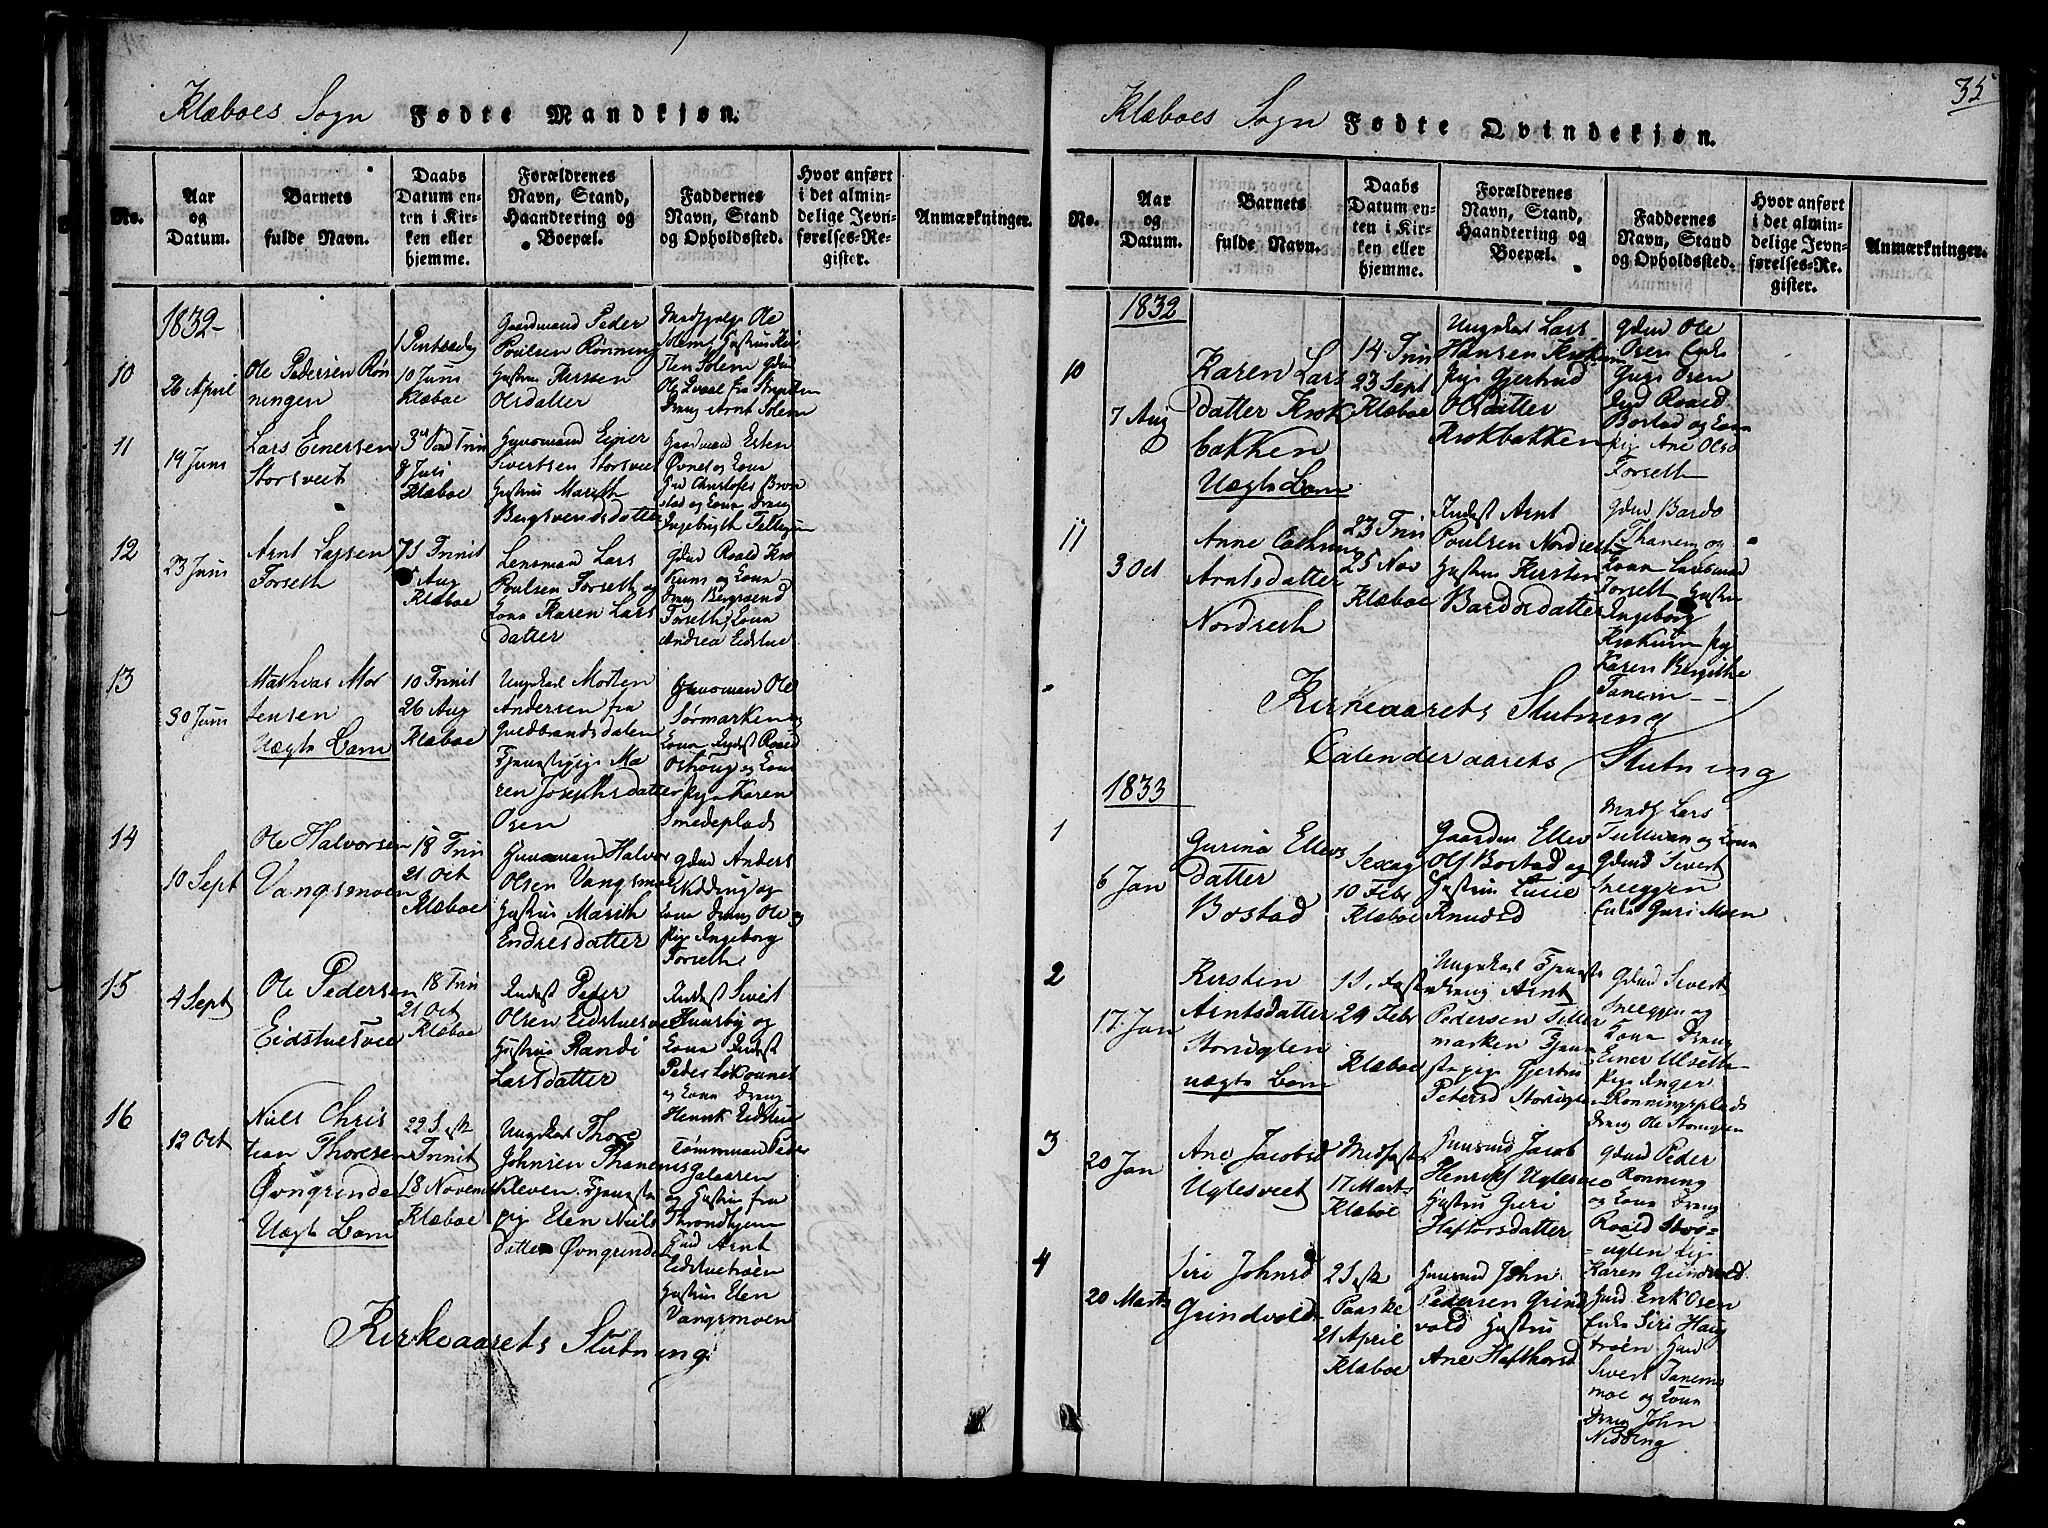 Klæboes Sogn Fødte Mandkjøn.
No.
Aar
og
Datum.
Barnets
fulde Navn.
Daabs
Datum en-
ten i Kir-
ken eller
hjemme.
Forældrenes
Navn, Stand,
Haandtering og
Boepæl.
Faddernes
Navn, Stand
og Opholdssted.
Hvor anført
i det almin-
delige Jevn-
førelses-Re-
gister.
Anmærkninger.
1832
10
26 April
Ole Pedersen Røn
ningen
10 Juni
Klæboe
Gaardmand Peder
Poulsen Rønning
Hustru Kirsten
Olsdatter
Ole
Ole
Arnt Solem
11
19 Juni
Lars Einersen
Storsveet
3die Trin
8 Juli
Klæboe
Huusmand Einer
Sivertsen Storsvee
Hustru Marith
Bergsvendsdatter
Gaardmand Esten
Øvnes og Kona
Christofer
stad og Kona Dreng
Ingebrigth
12
23 Juni
Arnt Larsen
Forseth
7 S Trinit
Aug
Klæboe
Lensmand Lars
Poulsen Forseth og
Kona Karen Lars
datter
Gdmd Roald Kro
kum og Kona
Dreng Bergsvend
Forseth, Kona
Andrea Eidstue
13
30 Juni
Mathias Mor
tensen
Uægte Barn
10 Trinit
26 Aug
Klæboe
Ungekarl Morten
Andersen fra
Guldbrandsdalen
Tjenestepige Ma
ren Josephsdatter
Osen
Huusman Ole
Sørmarken og
Kona Inderst Roald
og Kona
Pige Karen
Smedeplads
14
10 Sept
Ole Halvorsen
Vangsmoen
18 Trin
21 Oct
Klæboe
Huusmand Halvor
Olsen Vangsmoe
Hustru Marith
Endresdatter
Gdmd Anders
Nidding og
Kona Dreng Ole og
Pige Ingeborg
Forseth
15
4 Sept
Ole Pedersen
Eidstuesvee
18 Trin
21 Oct
Klæboe
Inderst Peder
Olsen Eidstuesvee
Hustru Randi
Larsdatter
Inderst Sivert
Huusby og
Kona Inderst
Peder
og Kona Dreng
Henrik Eidstue
16
12 Oct
Niels Chris
tian Thoresen
Øvngrinde
Uægte Barn
22 S. efter
Trinit
18 November
Klæboe
Ungekarl Thore
Johnsen Thanems
Kleven. Tjeneste
pig Elen Niels
datter Øvngrinde
Tømmerman Peder
og Hustru fra
Throndhjem
Arnt
Eidstuetrøen
Hustru Elen
Vangsmoen
Kirkeaarets Slutning
35
Klæboes Sogn Fødte Qvindekjøn.
No.
Aar
og
Datum.
Barnets
fulde Navn.
Daabs
Datum en-
ten i Kir-
ken eller
hjemme.
Forældrenes
Navn, Stand,
Haandtering og
Boepæl.
Faddernes
Navn, Stand
og Opholdssted.
Hvor anført
i det almin-
delige Jevn-
førelses-Re-
gister.
Anmærkninger.
1832
10
7 Aug
Karen Lars
datter Krok
bakken
Uægte Barn
14 Trin
23 Sept
Klæboe
Ungekarl Lars
Hansen Krokum
Pige Gjertrud
Olsdatter
Krokbakken
Gdmd Ole
Osen Enke
Guri Osen
Roald
Bostad og Kona
Pig Ane Olsd
Forseth
11
3 Oct
Anne
Arntsdatter
Nordseth
23 Trin
25 Nov
Klæboe
Inderst Arnt
Poulsen Nordseth
Hustru Kirsten
Bardosdatter
Gdmd Bardo
Thanem og
Kona Lensmand
Forseth Hustru
Ingeborg
Krokum Pig
Karen Bergithe
Tanem
Kirkeaarets Slutning
Calenderaarets Slutning
1833
1
6 Jan
Gurina Ellevs
datter
Bostad
Sexag
10 Febr
Klæboe
Gaardm Ellev
Ols Bostad og
Hustru Lucie
Knudsd
Lars
Tulluan og Kona
Gdmd Sivert
Sneeggen
Enke Guri Moen
2
17 Jan
Kirsten
Arntsdatter
Storuglen
uægte Barn
1 S. i Faste
24 Febr
Klæboe
Ungekarl Tjeneste
dreng Arnt
Pedersen Tiller
marken Tjene
stepige Gjertru
Petersd Storugle
Gdmd Sivert
Sneeggen og
Kona Dreng
Einer Ulseth
Pige Inger
Rønningsplads
Dreng Ole Storuglen
3
20 Jan
Ane Jacobsd
Uglesveet
Midfaste
17 Marts
Klæboe
Huusmd Jacob
Henriks Uglesvee
Hustru Guri
Hafthorsdatter
Gdmd Peder
Rønning
og Kona Dreng
Roald Stor
uglen Pige
Karen Grindvold
4
20 Marts
Siri Johnsd
Grindvold
2 S. efter
Paaske
21 April
Klæboe
Huusmd John
Pedersen Grind
vold Hustru
Ane Hafthorsd
Erik Osen
Enke Siri Haug
trøen
Sivert Tanems
moe og Kona
Dreng John
Nidding